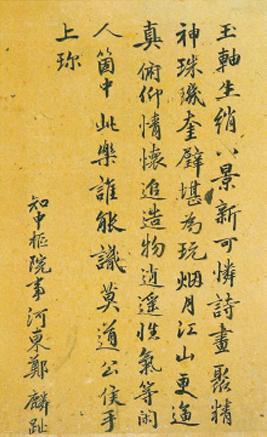 玉軸生綃八景新可憐詩畫聚精
神珠璣奎璧堪為玩烟月江山更逼
真俯仰情懷追造物逍遥性氣等閑
人箇中此樂誰能識莫道公侯手
上珎
知中樞院事河東鄭麟趾